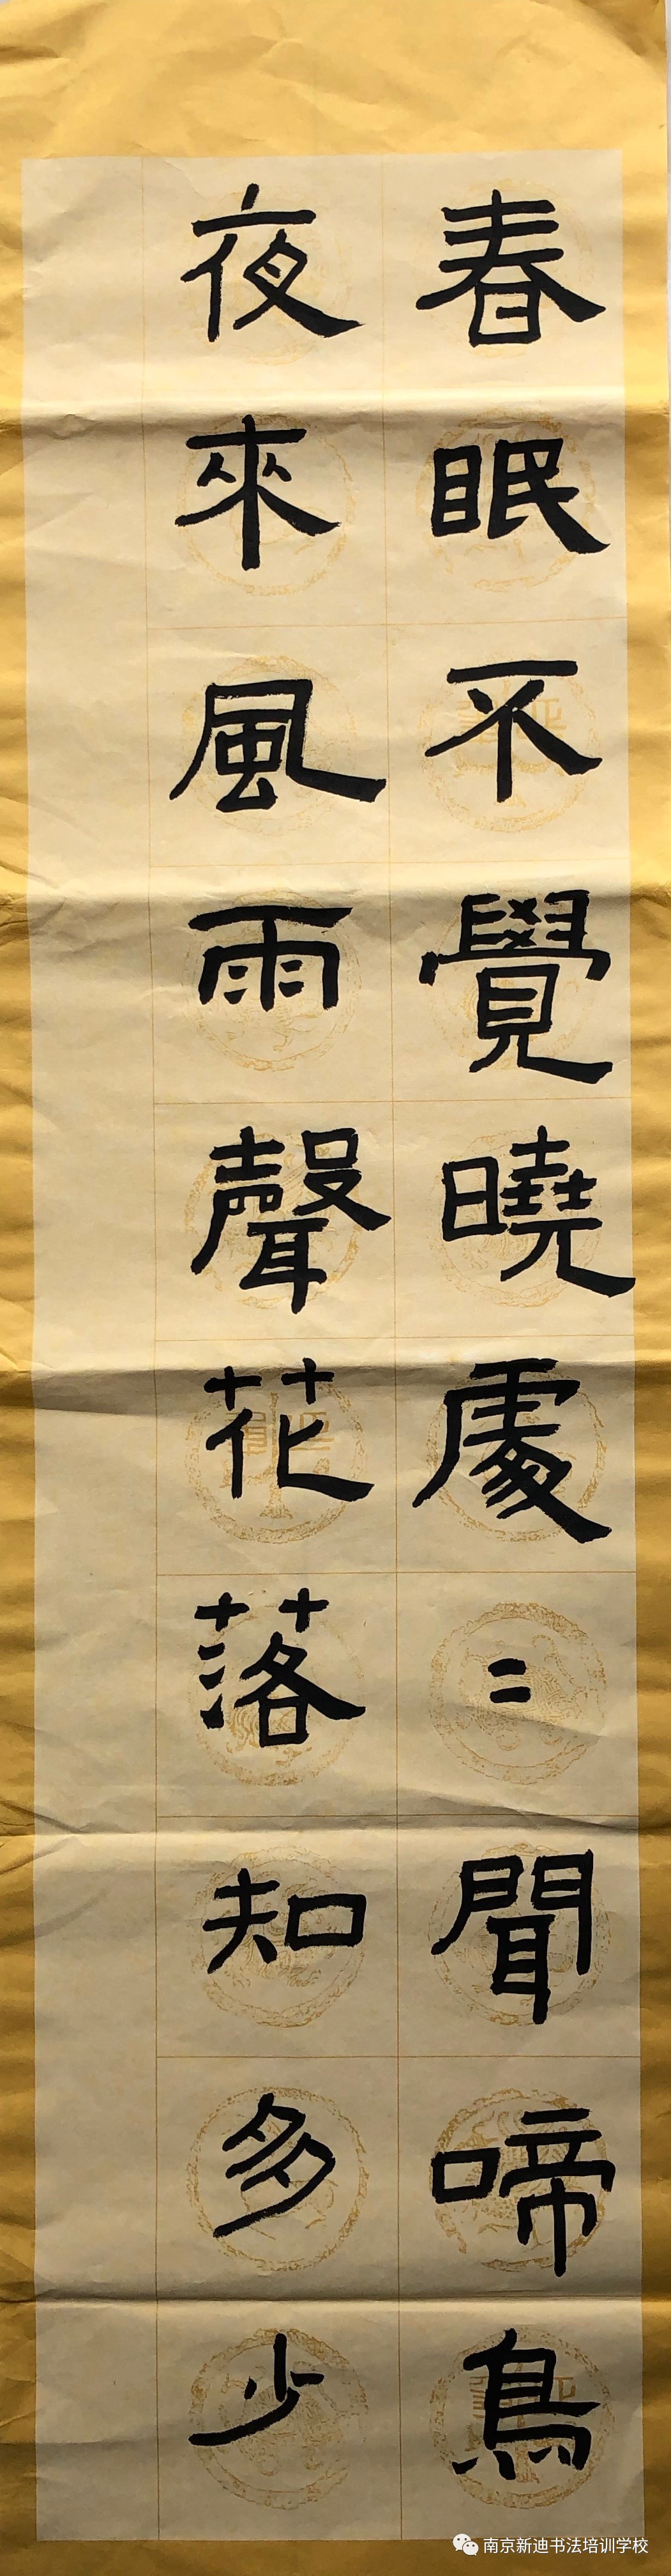 春眠不覺曉處〻聞啼鳥
夜來風雨聲花落知多少
南京新迪书法培训学校